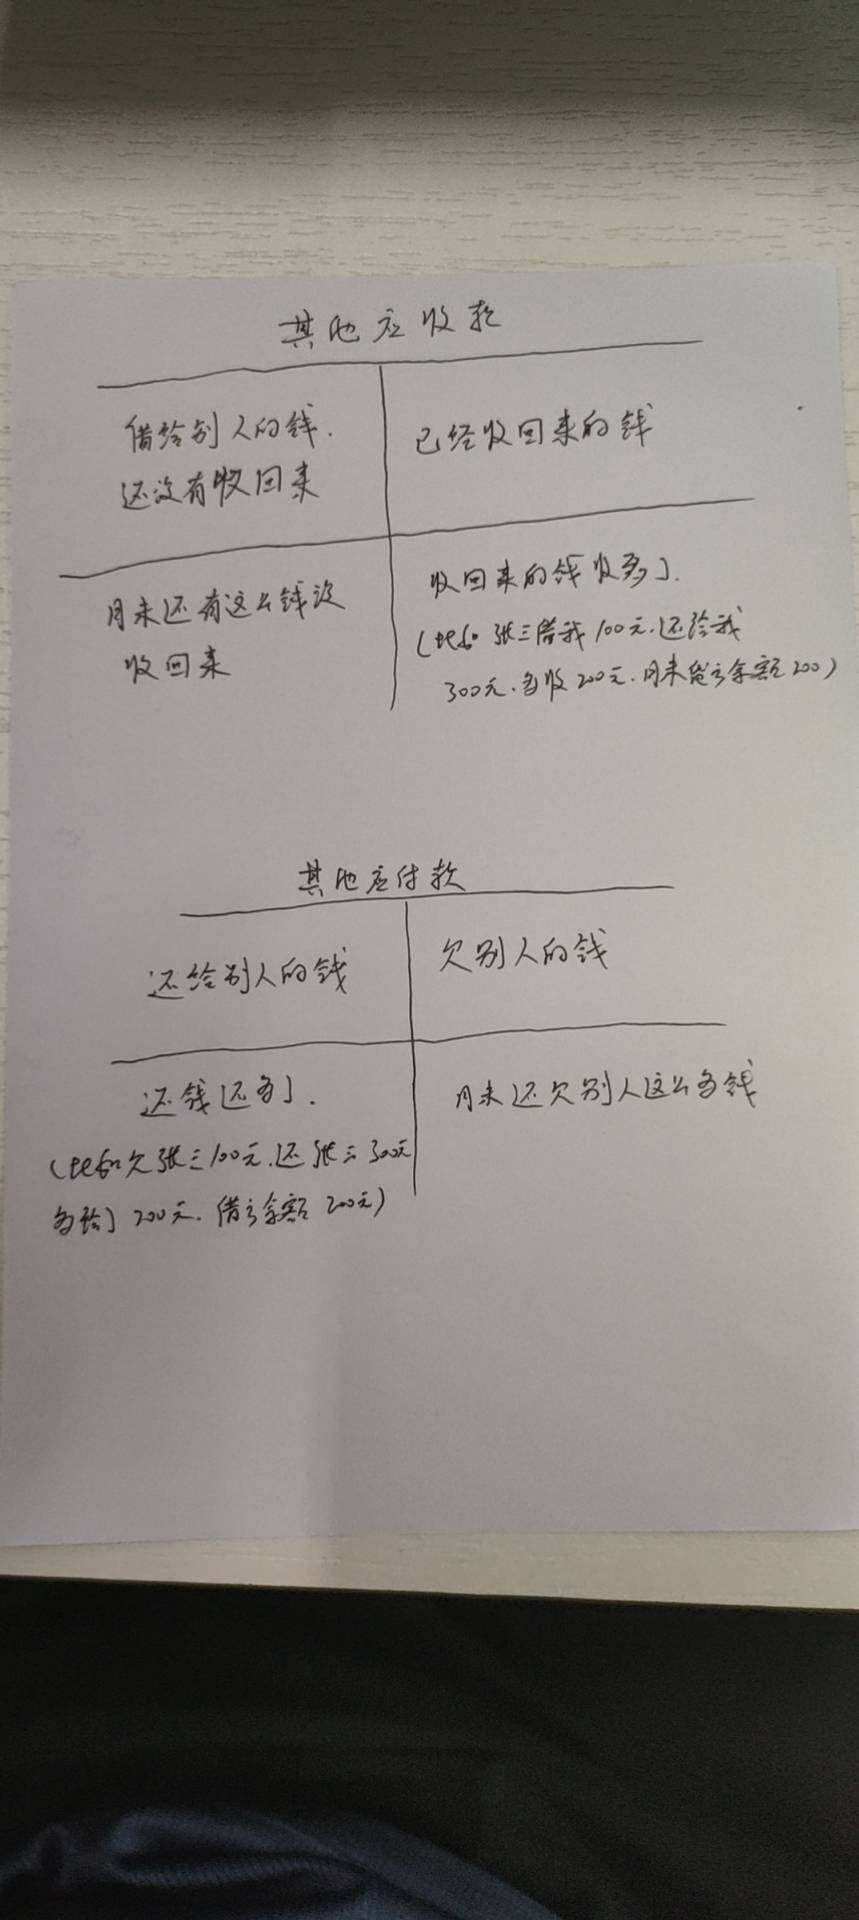 其他应收款
借给别人的钱.
还没有收回来
已经收回来的钱
月末还有这么钱没
收回来
收回来的钱收多了.
(比如 张三借我100元.还给我
300元.多收200元.月末贷方余额200)
其他应付款
还给别人的钱
欠别人的钱
还钱还多了.
(比如欠张三100元.还张三300元
多给了200元.借方余额200元)
月末还欠别人这么多钱